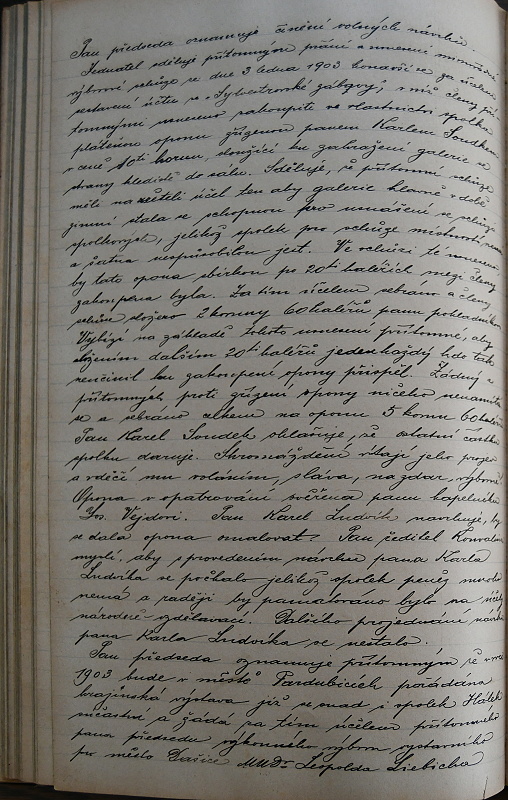 Pan předseda oznamuje činění volných návrhů.
Jednatel sděluje přítomným přání a usnesení mimořádné
výborové schůze ze dne 3 ledna 1903 konavší se za účelem
sestavení účtu ze „Sylvestrovské zábavy", v níž členy pří-
tomnými usneseno zakoupiti ve vlastnictví spolku
plátěnou oponu zřízenou panem Karlem Soudkem
v ceně 10ti korun, sloužící ku zahražení galerie se
strany hlediště do sálu. Sděluje, že přítomní schůze
měli na zřeteli účel ten aby galerie hlavně v době
zimní stala se schopnou pro usnášení se schůze
spolkových, jelikož spolek pro schůze místnosti nemá
a šatna nezpůsobilou jest. Ve schůzi té usneseno
by tato opona sbírkou po 20ti haléřích mezi členy
zakoupena byla. Za tím účelem sebráno a členy
schůze složeno 2 koruny 60 haléřů panu pokladníkovi
Vybízí na základě tohoto usnesení přítomné, aby
složením dalším 20ti haléřů jedenkaždý kdo tak
neučinil ku zakoupení opony přispěl. Žádný z
přítomných proti zřízení opony ničeho nenamítá
se a sebráno celkem na oponu 5 korun 60 haléřů
Pan Karel Soudek ohlašuje, že ostatní částku
spolku daruje. Shromáždění vítají jeho projev
a vděčí mu voláním, sláva, nazdar, výborně
Opona v opatrování svěřena panu kapelníku
Jos. Vejdovi. Pan Karel Ludvík navrhuje, by
se dala opona omalovat. Pan ředitel
myslí, aby s provedením návrhu pana Karla
Ludvíka se počkalo jelikož spolek peněz mnoho
nemá a raději by pamatováno bylo na účely
národně-vzdělávací. Dalšího projednávání návrhu
pana Karla Ludvíka se nestalo.
Pan předseda oznamuje přítomným že v roce
1903 bude v městě Pardubicích pořádána
krajinská výstava jíž se snad i spolek Hálek
súčastní a žádá za tím účelem přítomného
pana předsedu výkonného výboru výstavního
pro město Dašice MUDr Leopolda Liebicha